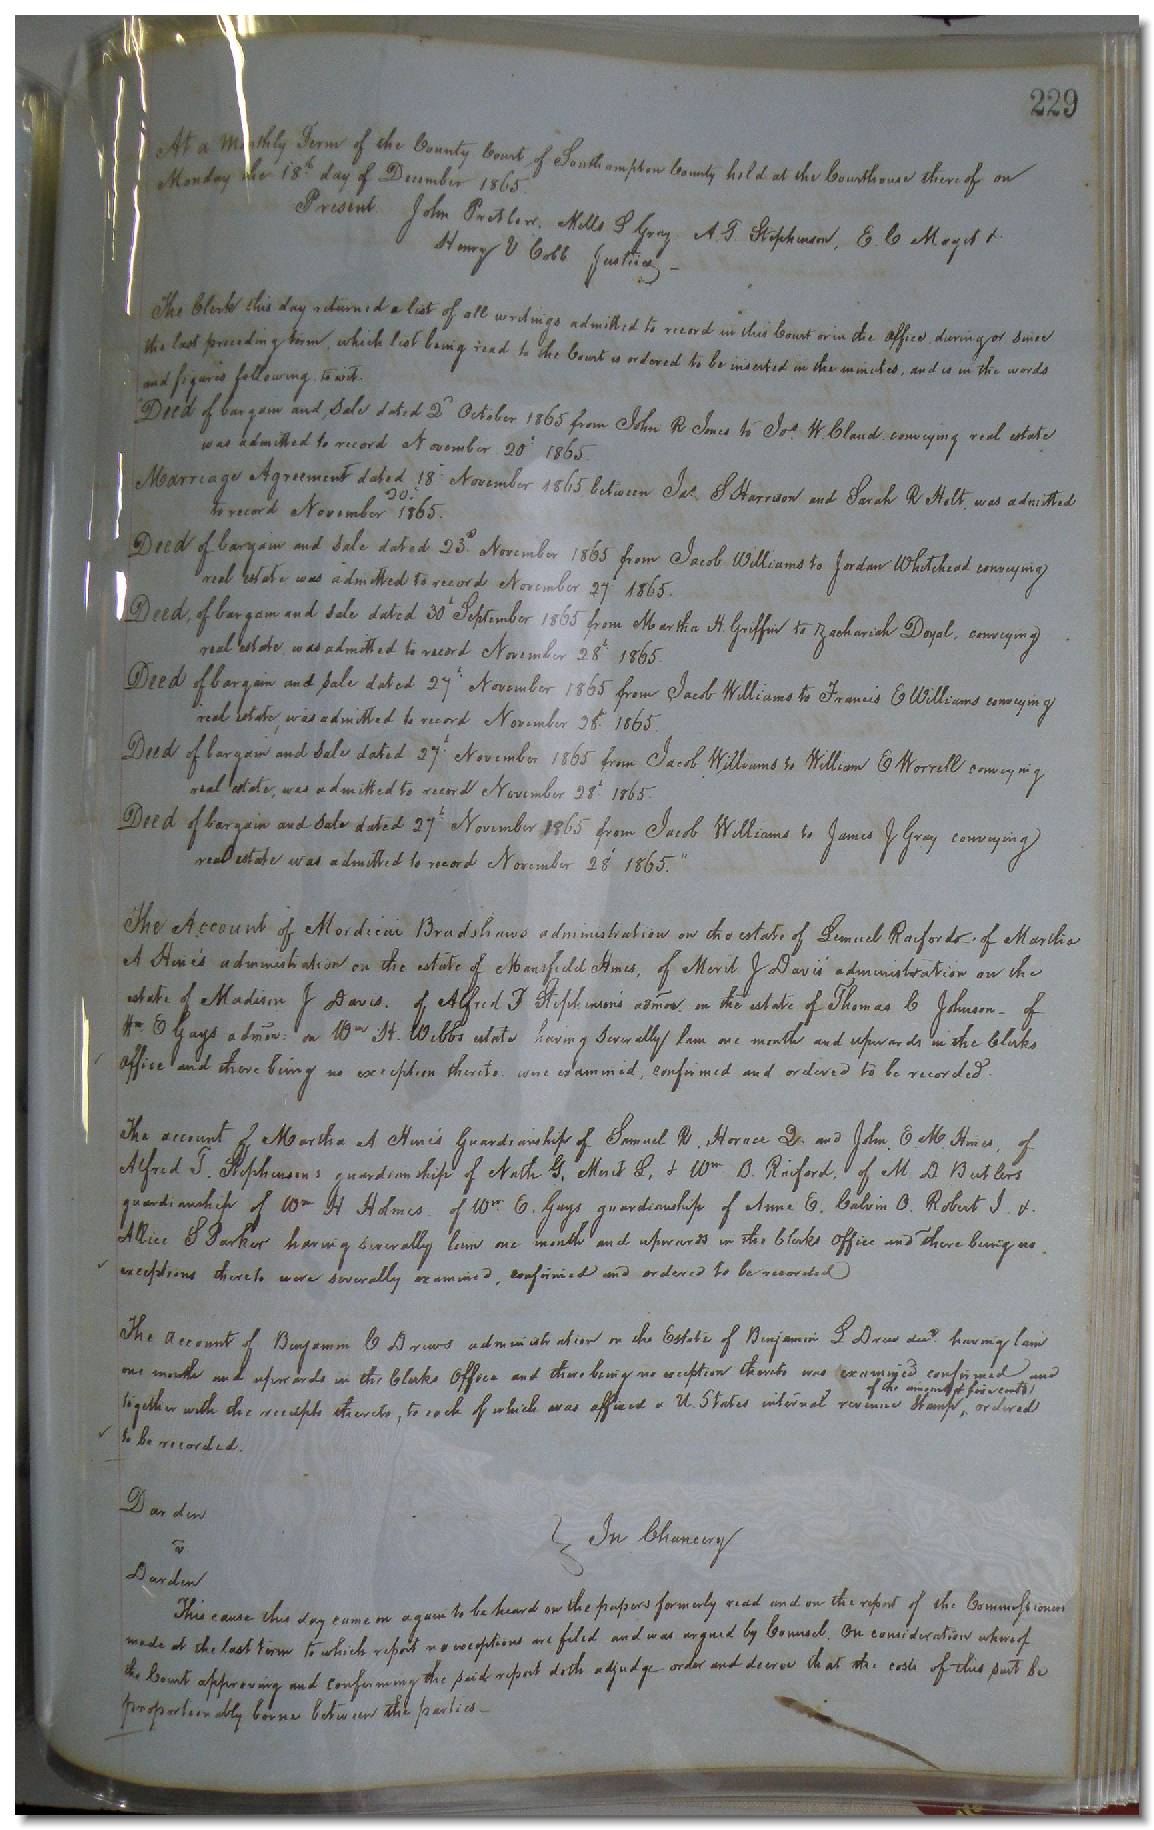 229
At a Monthly Term of the County Court of Southampton County held at the Courthouse thereof on
Monday the 18th day of December 1865.
Present John Pretlow, Mills S Gray A. T. Stephenson, E. C Moyet &
Henry V Cobb Justices –
The Clerk this day returned a list of all writings admitted to record in this Court or in the Office, during or since
the last preceding term, which list being read to the Court is ordered to be inserted in the minutes, and is in the words
and figures following, to wit.
"Deed of bargain and Sale dated 2d October 1865 from John R Ines to Jos. W. Claud conveying real estate
was admitted to record November 20t 1865.
Marriage Agreement dated 18t November 1865 between Jas. S Harrison and Sarah R Holt, was admitted
to record November 20t 1865.
Deed of bargain and Sale dated 23d November 1865 from Jacob Williams to Jordan Whitehead conveying
real estate was admitted to record November 27 1865.
Deed, of bargain and Sale dated 30t September 1865 from Martha H. Griffin to Zachariah Doyal, conveying
real estate, was admitted to record November 28t 1865.
Deed of bargain and Sale dated 27t November 1865 from Jacob Williams to Francis E Williams conveying
real estate, was admitted to record November 28t 1865.
Deed of bargain and Sale dated 27t November 1865 from Jacob Williams to William E Worrell conveying
real estate, was admitted to record November 28t 1865.
Deed of bargain and Sale dated 27t November 1865 from Jacob Williams to James J Gray conveying
real estate was admitted to record November 28t 1865."
The Account of Mordicai Bradshaws administration on the estate of Lemuel Raifords of Martha
A Hines administration on the estate of Mansfield Hines, of Merit J Davis' administration on the
estate of Madison J Davis, of Alfred T Stephenson's admon. on the estate of Thomas C Johnson – of
Wm E Gays admon: on Wm H. Webbs estate having severally lain one month and upwards in the Clerks
Office and there being no exception thereto were examined, confirmed and ordered to be recorded.
The account of Martha A Hines Guardianship of Samuel R. Horace Q. and John E. M. Hines, of
Alfred T. Stephensons guardianship of Nath G, Merit L, & Wm D. Raiford, of M D Butlers
guardianship of Wm H Holmes of Wm E. Gays guardianship of Anne E. Calvin O. Robert I. &
Allice S Parker having severally lain one month and upwards in the Clerks Office and there being no
exceptions thereto were severally examined, confirmed and ordered to be recorded
The account of Benjamin C Drews administration on the Estate of Benjamin L Drew decd. having lain
one month and upwards in the Clerks Office and there being no exception thereto was examined, confirmed and
of the amount of five cents
together with the receipts thereto, to each of which was affixed a U. States internal revenue Stamp, ordered
to be recorded.
Darden
v
Darden
} In Chancery
This cause this day came on again to be heard on the papers formerly read and on the report of the Commissioners
made at the last term to which report no exceptions are filed and was argued by Counsel. On consideration whereof
the Court approving and confirming the said report doth adjudge order and decree that the costs of this suit be
proportionably borne between the parties –